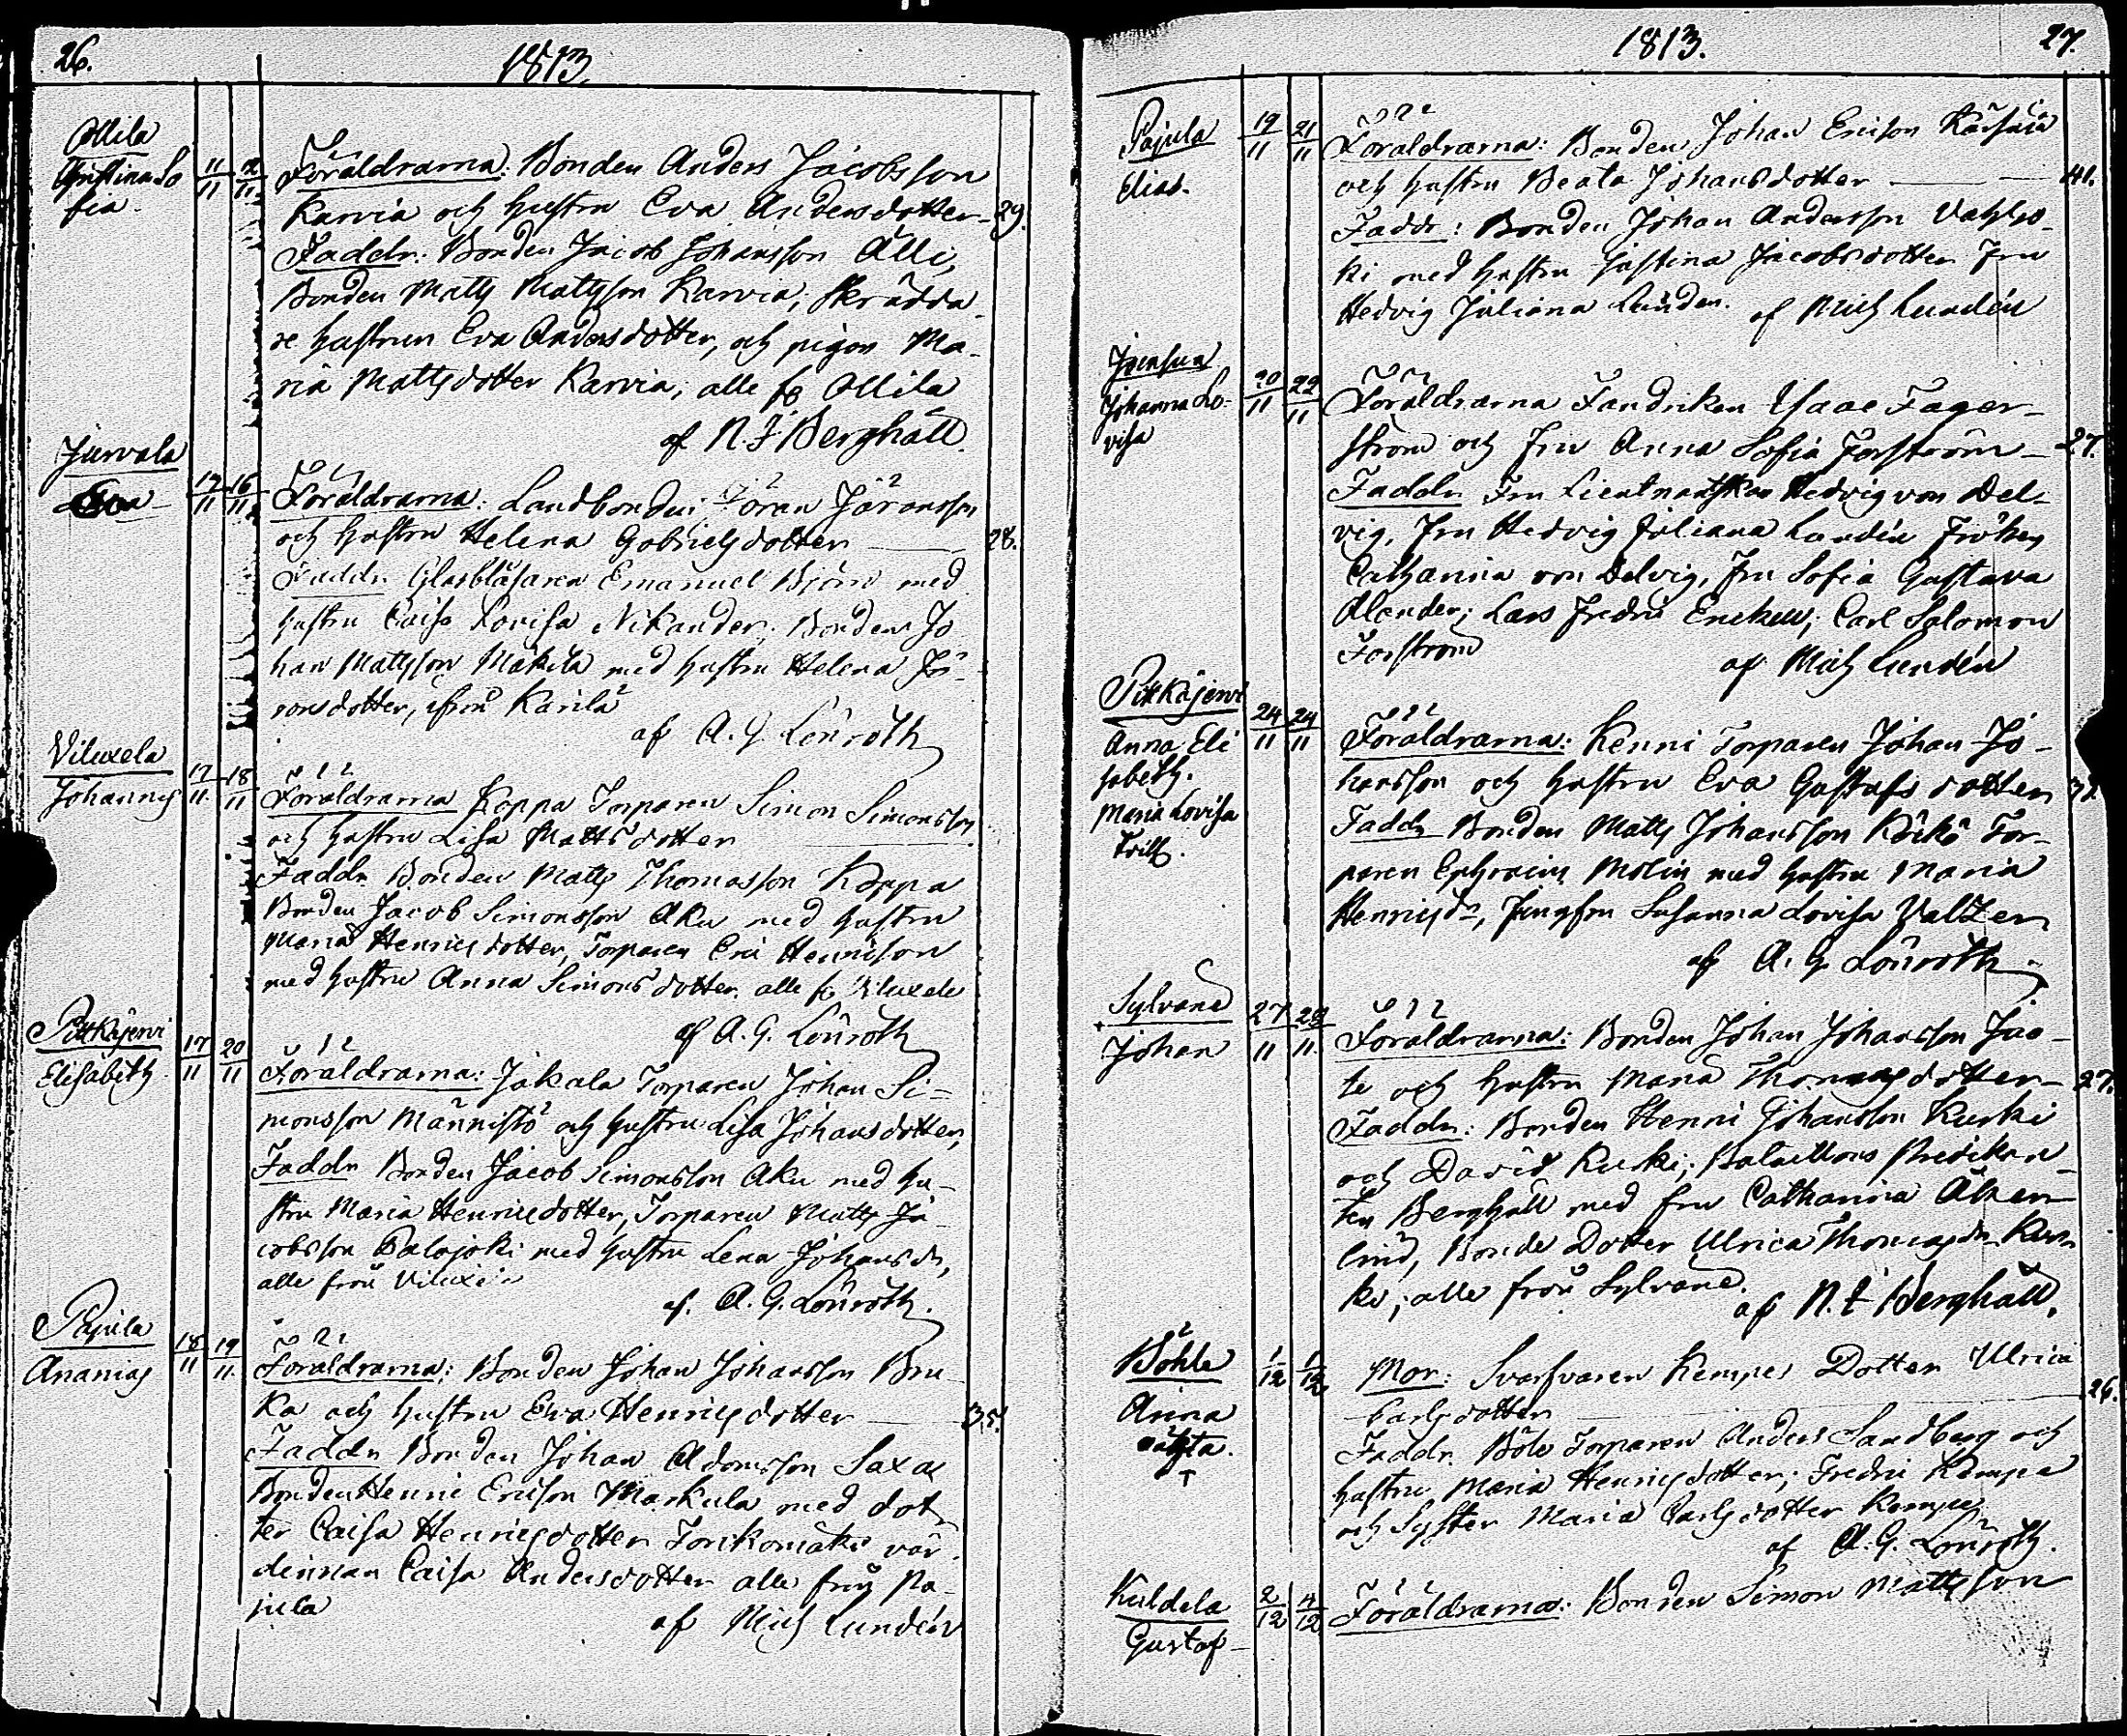 26.
1813.
Ollila
Christina So
fia.
11/11 12/11
Föräldrarna: Bonden Anders Jacobsson
Karvia och hustru Eva Andersdotter 29.
Faddr: Bonden Jacob Johansson Älli,
Bonden Matts Mattsson Karvia, skrädda
re hustrun Eva Andersdotter, och pigan Ma-
ria Mattsdotter Karvia, alle fr. Ollila
af N. J. Berghäll.
Jurvala
Eva
12/11 16/11
Föräldrarna: Landbonden Jöran Jöransson
och hustru Helena Gabrielsdotter 28.
Faddr: Glasblåsaren Emanuel Björn med
hustru Caisa Lovisa Nikander, Bonden Jo
han Mattsson Mäkilä med hustru Helena Jö-
ransdotter, ifrån Karilä
af A. G. Lönroth
Viluxela
Johannes
17/11. 18/11
Föräldrarna Koppa Torparen Simon Simonsson
och hustru Lisa Mattsdotter
Faddr. Bonden Matts Thomasson Koppa
Bonden Jacob Simonsson Aku med hustru
Maria Henricsdotter, Torparen Eric Henricson
med hustru Anna Simonsdotter. alle fr. Viluxela
af A. G. Lönroth
Pitkäjervi
Elisabeth
17/11 20/11
Föräldrarna: Jakala Torparen Johan Si=
monsson Männistö och hustru Lisa Johansdotter,
Faddr Bonden Jacob Simonsson Aku med hu-
stru Maria Henricsdotter, Torparen Matts Ja-
cobsson Palojoki med hustru Lena Johansdr,
alle från
af. A. G. Lönroth.
Pajula
Ananias
18/11 19/11.
Föräldrarna: Bonden Johan Johansson Bru
ka och hustru Eva Henricsdotter 35.
Faddr Bonden Johan Adamsson Saxa
Bonden Henric Ericson Markula med dot
ter Caisa Henricsdotter Torikomäki vär
dinnan Caisa Andersdotter alle från Pa-
jula
af Mich Lundén
1813.
27.
Pajula
Elias.
19/11 21/11
Föräldrarna: Bonden Johan Ericson
och hustru Beata Johansdotter 41.
Faddr: Bonden Johan Andersson Vahljo-
ki med hustru Justina Jacobsdotter Fru
Hedvig Juliana Lundén. af Mich Lundén
Johanna Lo-
visa
20/11 22/11
Föräldrarna Fändriken Isaac Fager-
ström och Fru Anna Sofia Forström 27.
Faddr Fru Lieutnantskan Hedvig von Del-
vig, Fru Hedvig Juliana Lundén Fröken
Catharina von Delvig, Fru Sofia Gustava
Alander; Lars Fredric Enckell, Carl Salomon
Forström
af Mich Lundén
Pitkäjervi
Anna Eli
sabeth.
Maria Lovisa
Trill.
24/11 24/11
Föräldrarna: Kenni Torparen Johan Jo-
hansson och hustru Eva Gustafsdotter
Faddr Bonden Matts Johansson Köikö Tor-
paren Ephraim Molin med hustru Maria
Henricsdr, Jungfru Susanna Lovisa Valzer
af A. G. Lönroth
Sylvana
Johan
27/11 28/11.
Föräldrarna: Bonden Johan Johansson Jao-
la och hustru Maria Thomasdotter 27.
Faddr: Bonden Henric Johansson Kuski
och David Kuski; Bataillons Predikan-
ten Berghäll med fru Catharina Åker
lind, Bonde Dotter Ulrica Thomasdr Kus
ki; alle från Sylvana.
af N. J Berghäll.
Böhle
Anna
oäkta.
1/12 1/12
Mor: Svarfvaren Kempes Dotter Ulrica
Carlsdotter 26.
Faddr. Böle Torparen Anders Sandberg och
hustru Maria Henricsdotter; Fredric Kempe
och Syster Maria Carlsdotter Kempe
af A. G. Lönroth.
Kuldela
Gustaf
2/12 4/12
Föräldrarna: Bonden Simon Mattsson